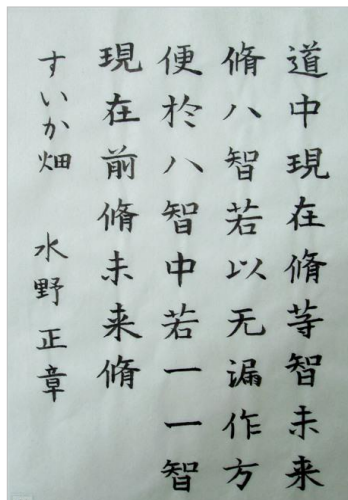 道中現在脩等智未来
脩八智若以无漏作方
便於八智中若一一智
現在前脩未来脩
すいか畑 水野正章